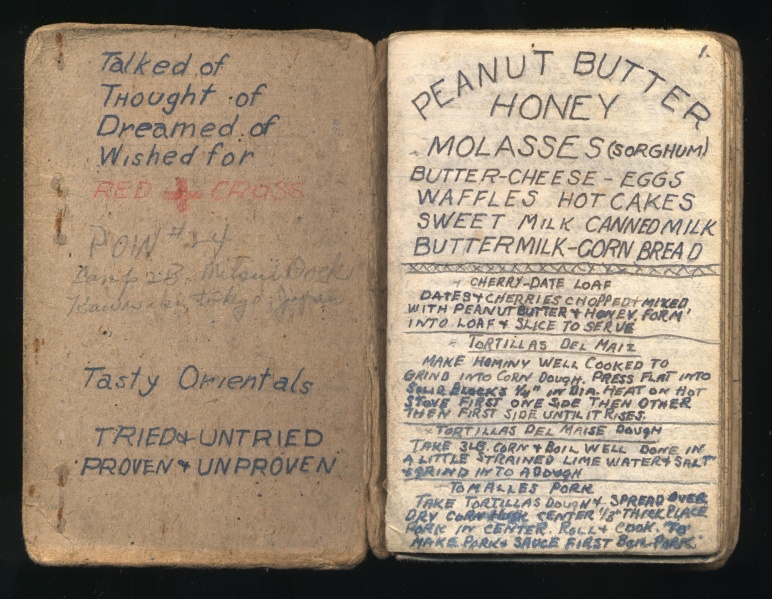 Talked of
Thought of
Dreamed of
Wished for
RED + CROSS
POW #24
Camp 2B. Mitsui Dock
Kawasaki, Tokyo, Japan
Tasty Orientals
TRIED & UNTRIED
PROVEN & UNPROVEN
1.
PEANUT BUTTER
HONEY
MOLASSES (SORGHUM)
BUTTER-CHEESE-EGGS
WAFFLES HOT CAKES
SWEET MILK CANNED MILK
BUTTERMILK-CORN BREAD
CHERRY-DATE LOAF
DATES & CHERRIES CHOPPED & MIXED
WITH PEANUT BUTTER & HONEY. FORM
INTO LOAF & SLICE TO SERVE
TORTILLAS DEL MAIZ
MAKE HOMINY WELL COOKED TO
GRIND INTO CORN DOUGH. PRESS FLAT INTO
BLOCKS IN DIA. HEAT ON HOT
STOVE FIRST ONE SIDE THEN OTHER
THEN FIRST SIDE UNTIL IT RISES.
TORTILLAS DEL MAISE DOUGH
TAKE 3LB. CORN & BOIL WELL DONE IN
A LITTLE STRAINED LIME WATER & SALT
& GRIND INTO A DOUGH
TOMALLES PORK
TAKE TORTILLAS DOUGH & SPREAD OVER
DRY CORN CENTER 1/8" THICK PLACE
PORK IN CENTER. ROLL & COOK. TO
MAKE PORK & SAUCE FIRST BOIL PORK